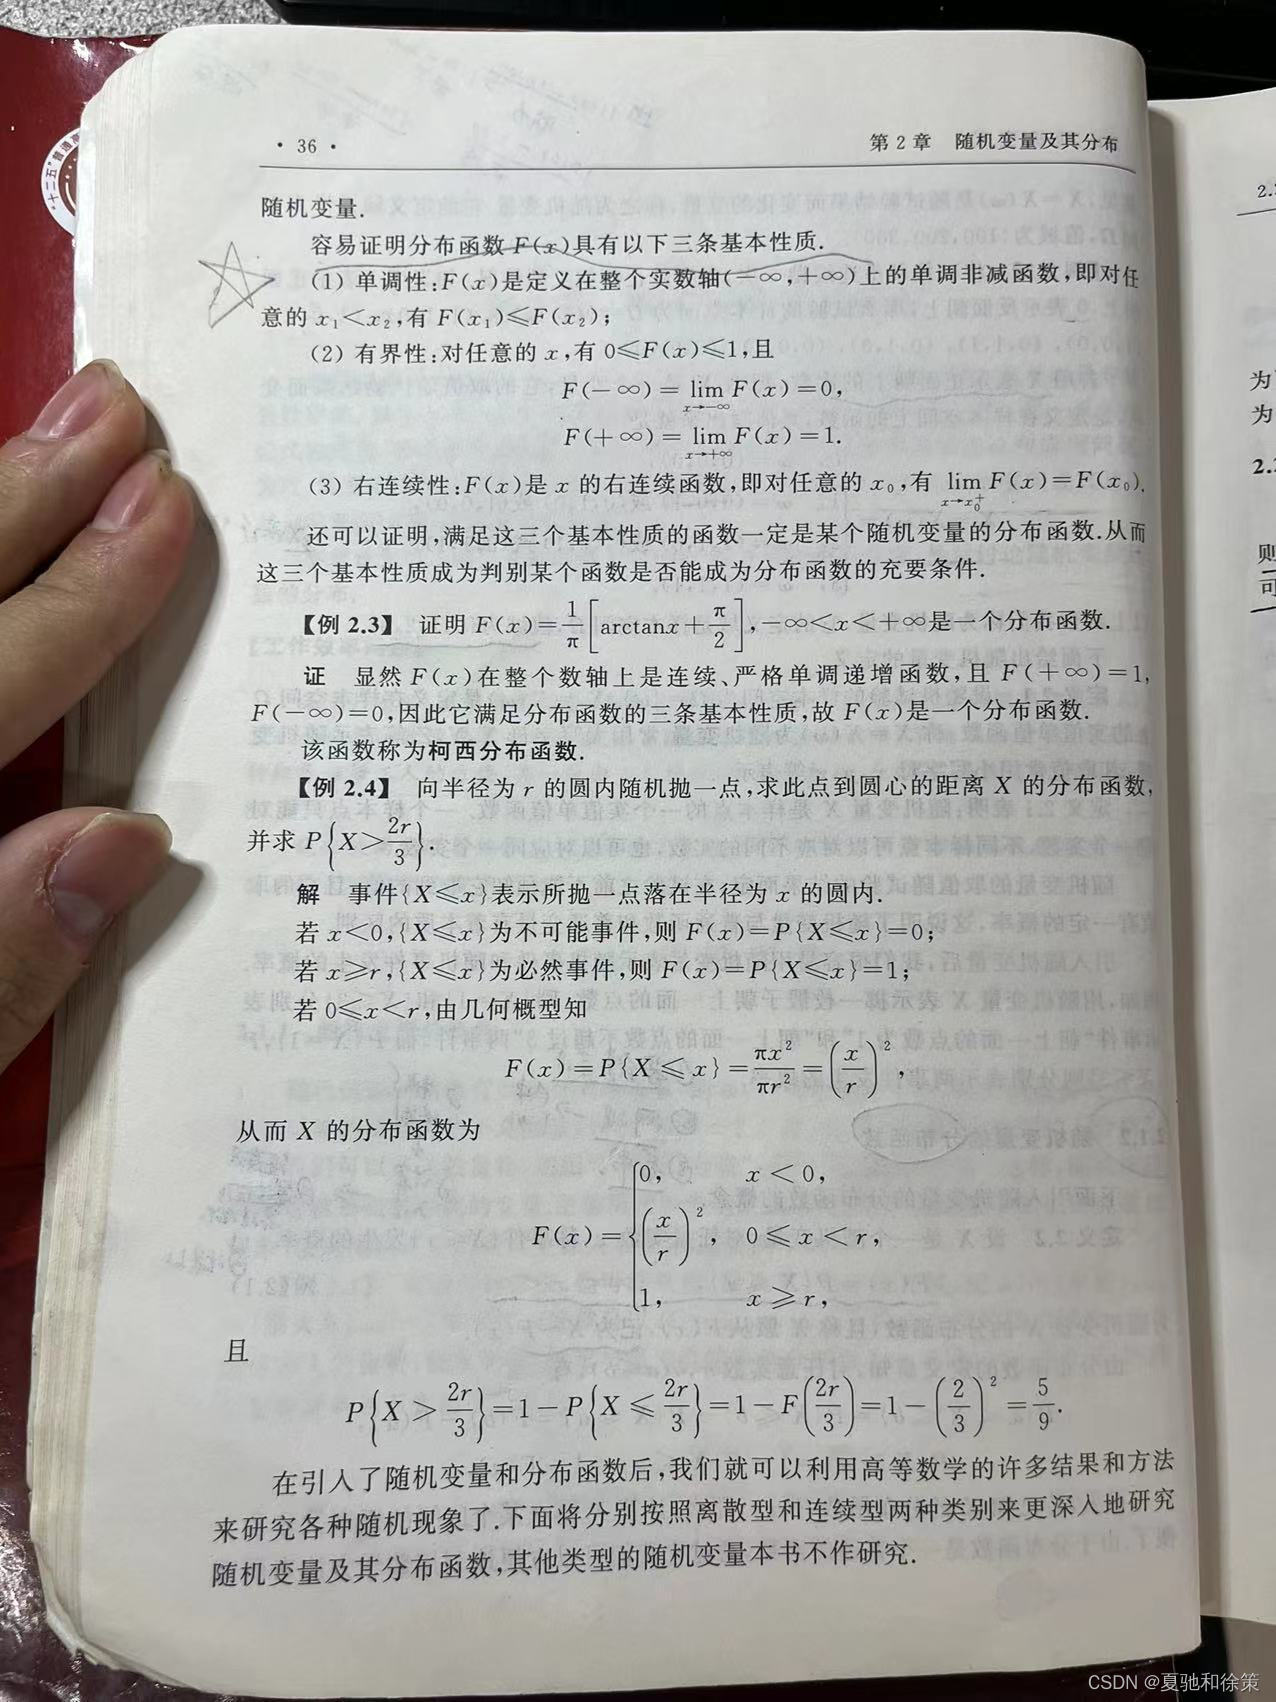 · 36 ·
第 2 章 随机变量及其分布
随机变量.
容易证明分布函数 F(x)具有以下三条基本性质.
(1) 单调性:F(x)是定义在整个实数轴(-∞,+∞)上的单调非减函数,即对任
意的 x₁<x₂,有 F(x₁)≤F(x₂);
(2) 有界性:对任意的 x,有 0≤F(x)≤1,且
F(-∞)= lim_{x→-∞} F(x)=0,
F(+∞)= lim_{x→+∞} F(x)=1.
(3) 右连续性:F(x)是 x 的右连续函数,即对任意的 x₀,有 lim_{x→x₀⁺} F(x)=F(x₀).
还可以证明,满足这三个基本性质的函数一定是某个随机变量的分布函数.从而
这三个基本性质成为判别某个函数是否能成为分布函数的充要条件.
【例 2.3】 证明 F(x)=1/π[arctanx+π/2],-∞<x<+∞是一个分布函数.
证 显然 F(x)在整个数轴上是连续、严格单调递增函数,且 F(+∞)=1,
F(-∞)=0,因此它满足分布函数的三条基本性质,故 F(x)是一个分布函数.
该函数称为柯西分布函数.
【例 2.4】 向半径为 r 的圆内随机抛一点,求此点到圆心的距离 X 的分布函数,
并求 P{X>2r/3}.
解 事件{X≤x}表示所抛一点落在半径为 x 的圆内.
若 x<0,{X≤x}为不可能事件,则 F(x)=P{X≤x}=0;
若 x≥r,{X≤x}为必然事件,则 F(x)=P{X≤x}=1;
若 0≤x<r,由几何概型知
F(x)=P{X≤x}=πx²/πr²=(x/r)²,
从而 X 的分布函数为
0, x<0,
F(x)={(x/r)², 0≤x<r,
1, x≥r,
且
P{X>2r/3}=1-P{X≤2r/3}=1-F(2r/3)=1-(2/3)²=5/9.
在引入了随机变量和分布函数后,我们就可以利用高等数学的许多结果和方法
来研究各种随机现象了.下面将分别按照离散型和连续型两种类别来更深入地研究
随机变量及其分布函数,其他类型的随机变量本书不作研究.
2.
为
为
2.
则
可
CSDN @夏驰和徐策